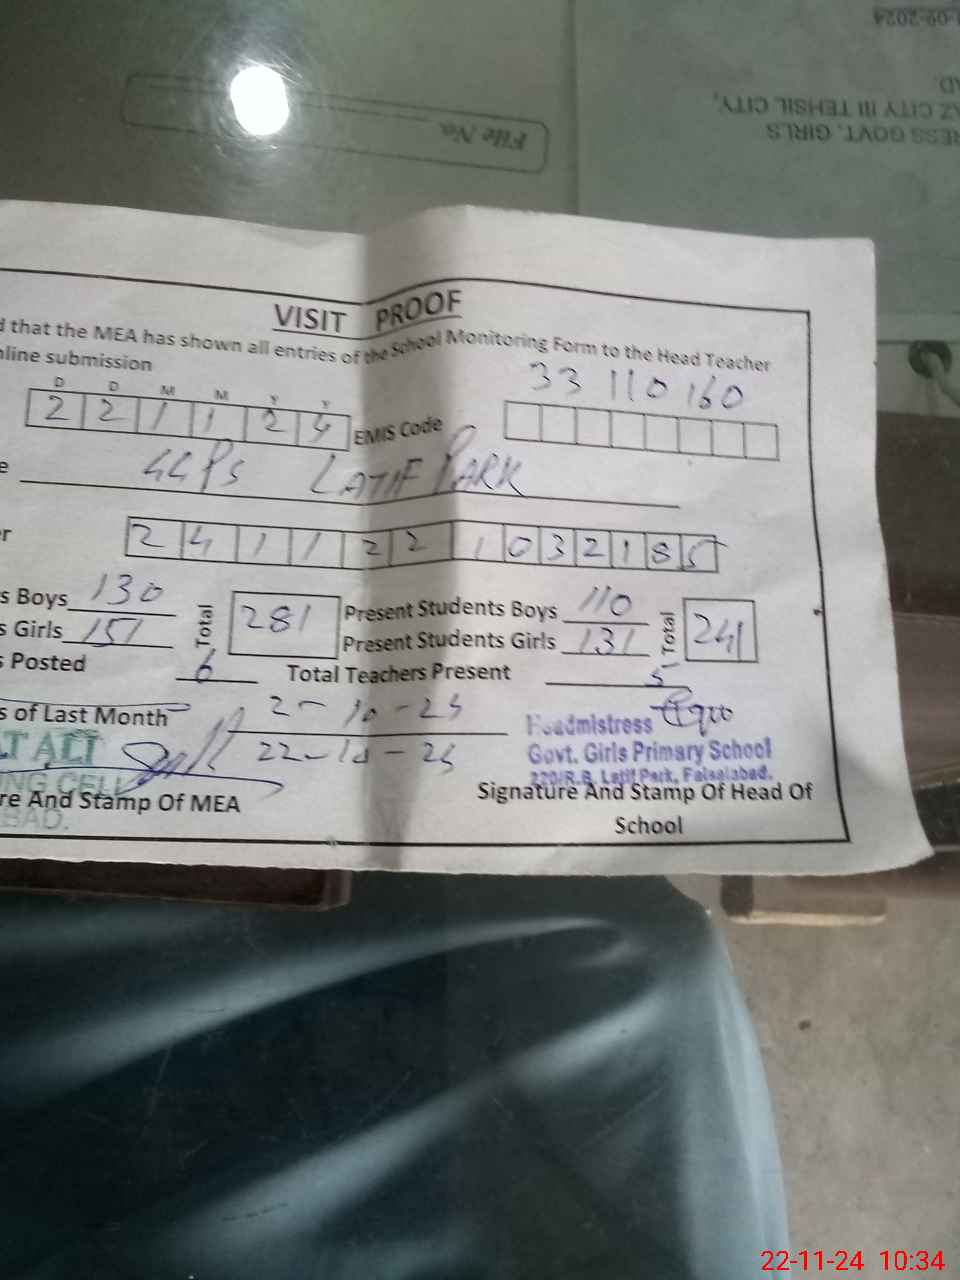 -09-2024
AD.
AZ CITY III TEHSIL CITY,
RESS GOVT. GIRLS
File No.
VISIT PROOF
d that the MEA has shown all entries of the School Monitoring Form to the Head Teacher
nline submission
33 110 160
D D M M Y Y
2 2 1 1 2 4 EMIS Code
e GGPS LATIF PARK
r 2 4 1 1 2 2 1 0 3 2 1 8 5
s Boys 130 Total 281 Present Students Boys 110 Total 241
s Girls 151 Present Students Girls 131
s Posted 6 Total Teachers Present 5
s of Last Month 2-10-24
22-10-24
T ALI
ING CELL
BAD.
re And Stamp Of MEA
Headmistress
Govt. Girls Primary School
220/R.B. Latif Park, Faisalabad.
Signature And Stamp Of Head Of
School
22-11-24 10:34